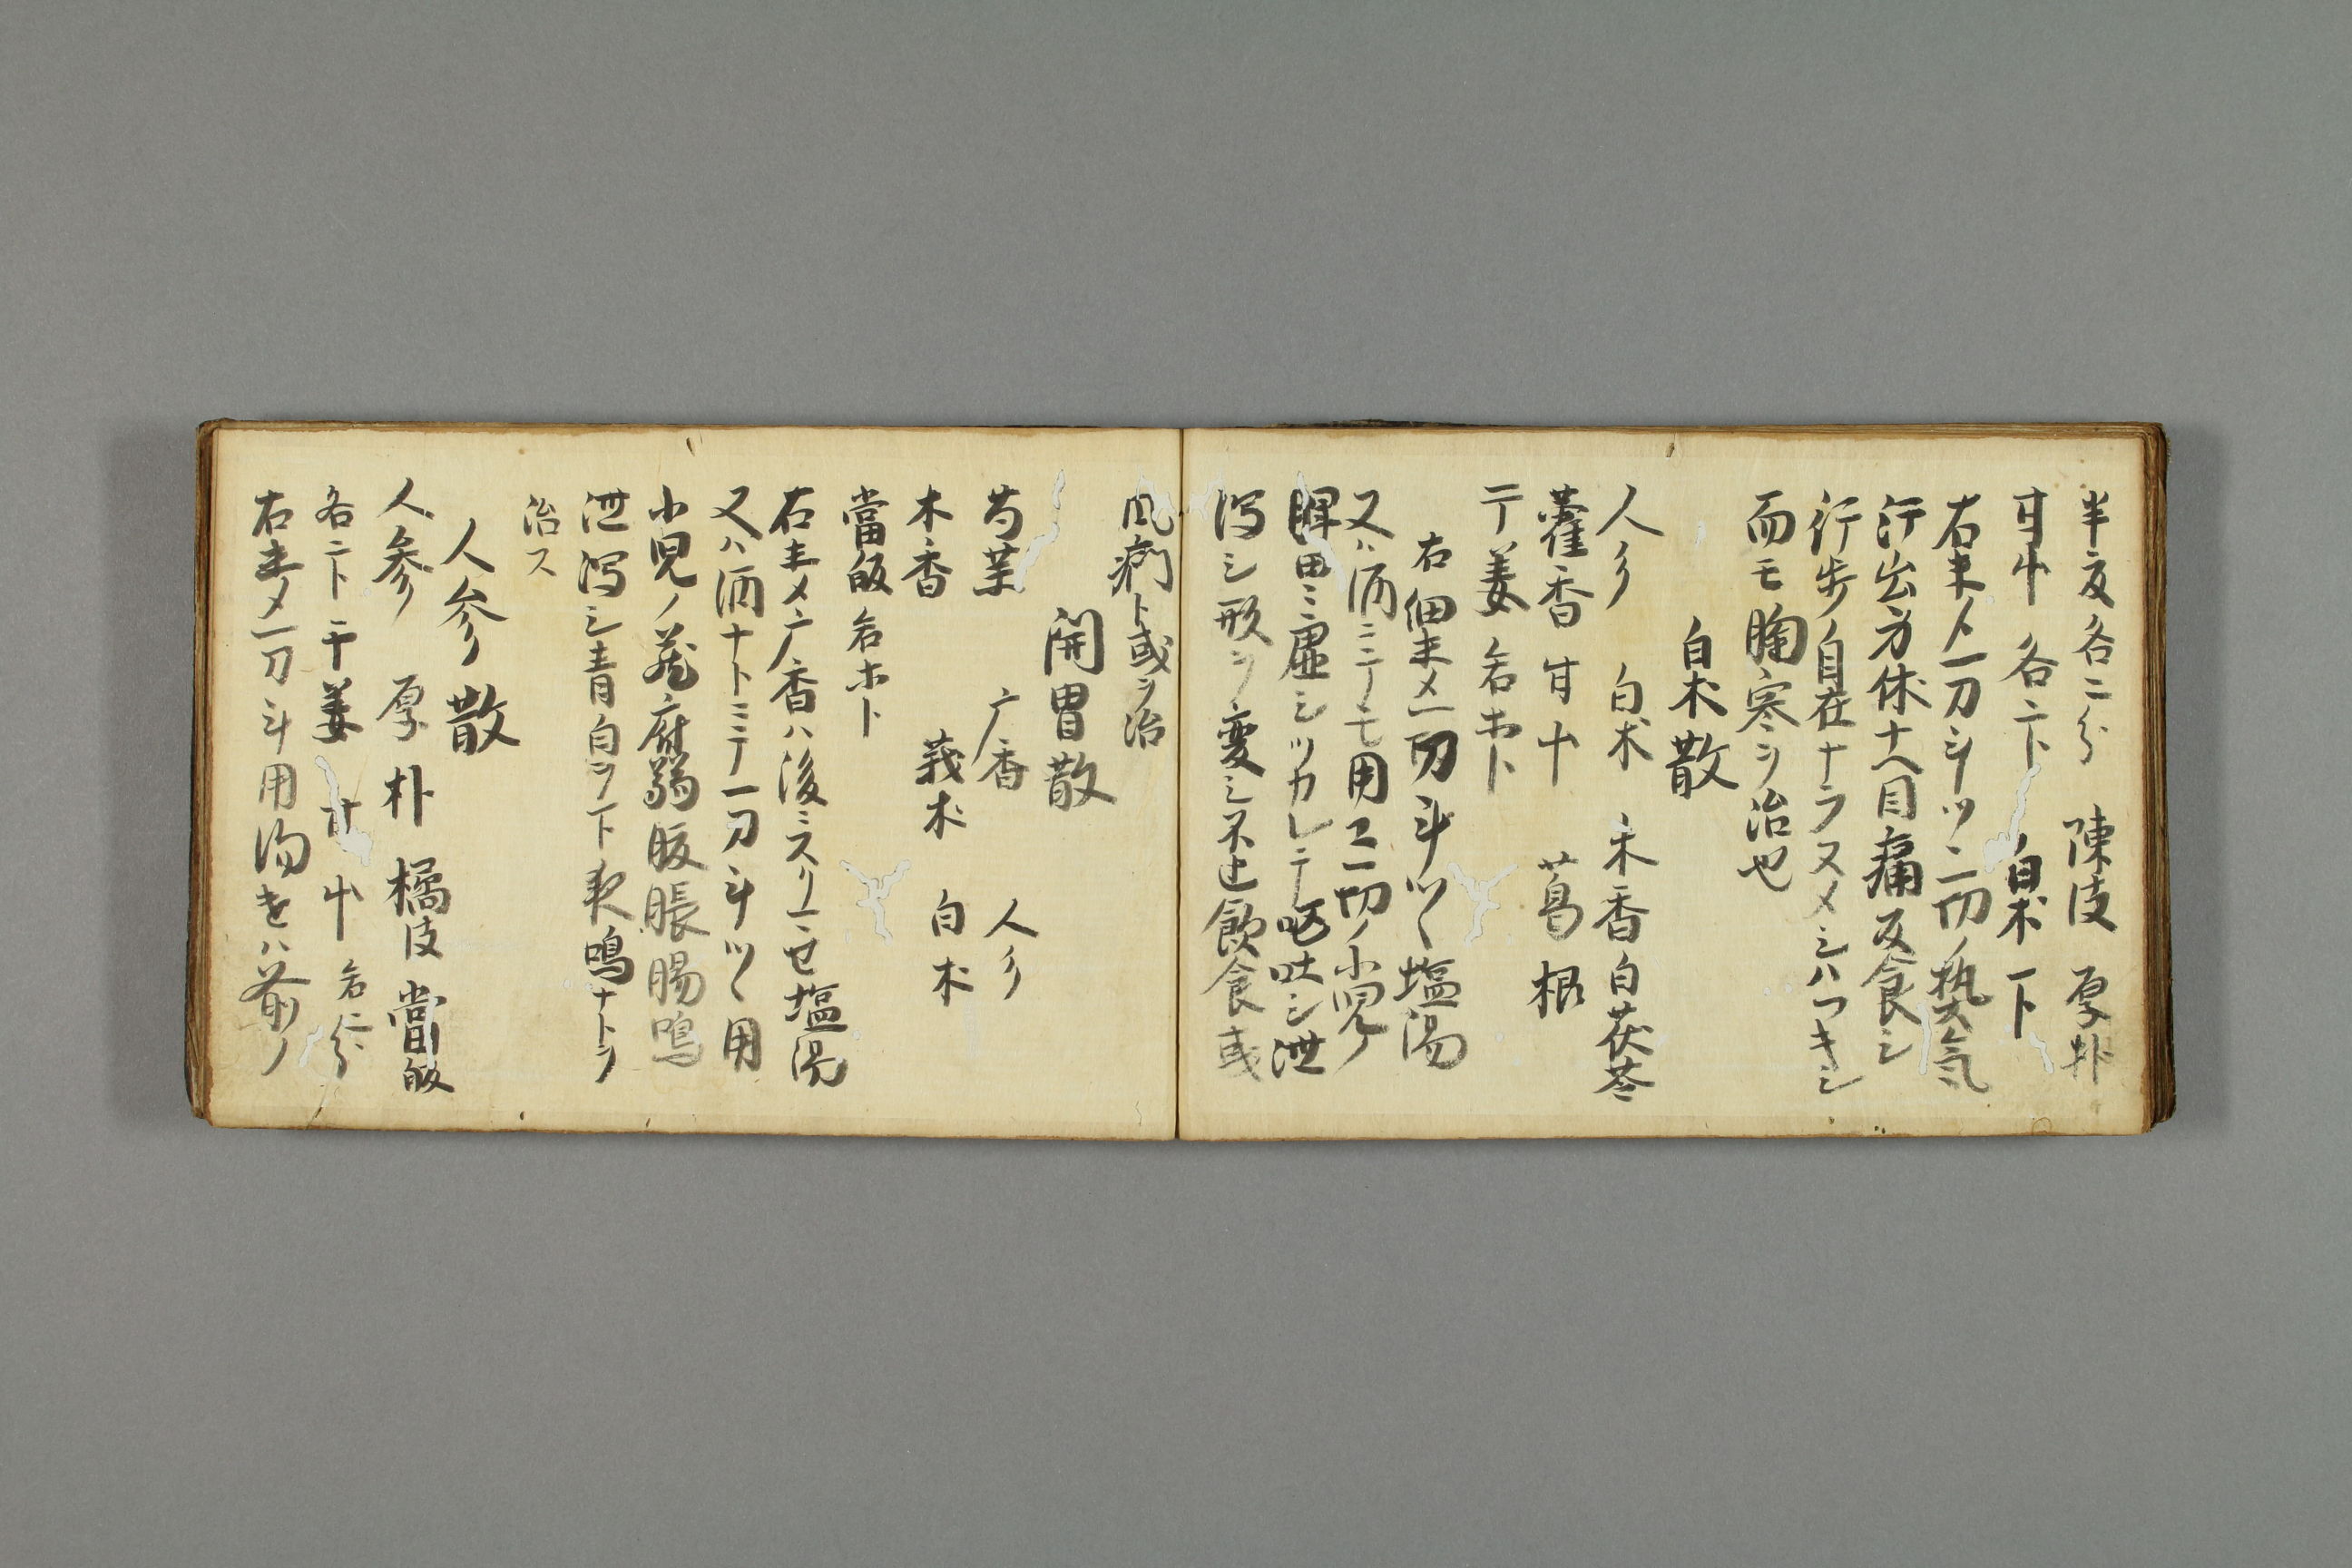 半夏各二分 陳皮 厚朴
甘屮 各二下 白术 一下
右末〆一刀斗ツヽ二切ノ熱気
汗出身体大目痛反食シ
行歩ノ自在ナラヌメシハツキシ
而モ胸寒ヲ治也
白术散
人參 白术 木香 白茯苓
藿香 甘屮 葛根
干姜 各ホト
右細末〆一刀斗ツヽ塩湯
又ハ酒ニテモ用ヨ一切ノ小児ノ
脾胃ニ虚シツカレテ呕吐シ泄
泻シ形ヲ変シ不止飲食或
風痢ト或ヲ治
開胃散
芍薬 广香 人參
木香 莪术 白术
當皈 各ホト
右末〆广香ハ後ニスリ一セ塩湯
又ハ酒ナトニテ一刀斗ツヽ用
小児ノ蔵府弱腹脹腸鳴
泄泻シ青白ヲ下夜鳴ナトヲ
治ス
人参散
人参 厚朴 橘皮 當皈
各二下 干姜 甘屮 各二分
右末〆一刀斗用湯きハ前ノ